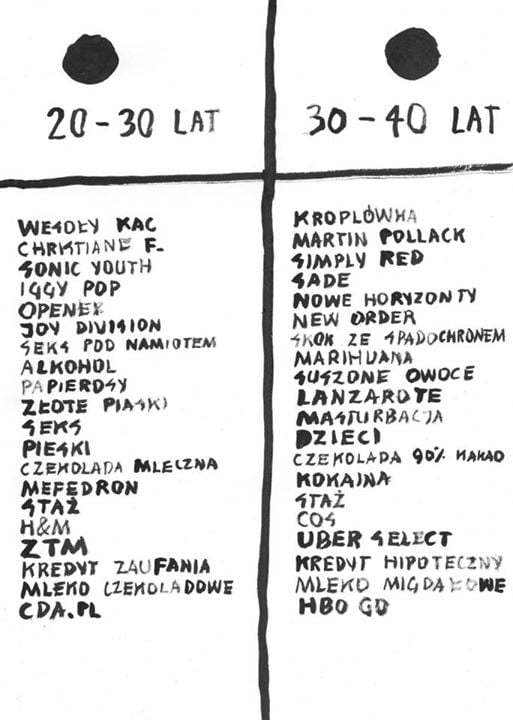 20-30 LAT
WESOŁY KAC
CHRISTIANE F.
SONIC YOUTH
IGGY POP
OPENER
JOY DIVISION
SEKS POD NAMIOTEM
ALKOHOL
PAPIEROSY
ZŁOTE PIASKI
SEKS
PIESKI
CZEKOLADA MLECZNA
MEFEDRON
STAŻ
H&M
ZTM
KREDYT ZAUFANIA
MLEKO CZEKOLADOWE
CDA.PL
30-40 LAT
KROPLÓWKA
MARTIN POLLACK
SIMPLY RED
SADE
NOWE HORYZONTY
NEW ORDER
SKOK ZE SPADOCHRONEM
MARIHUANA
SUSZONE OWOCE
LANZAROTE
MASTURBACJA
DZIECI
CZEKOLADA 90% KAKAO
KOKAINA
STAŻ
COS
UBER SELECT
KREDYT HIPOTECZNY
MLEKO MIGDAŁOWE
HBO GO